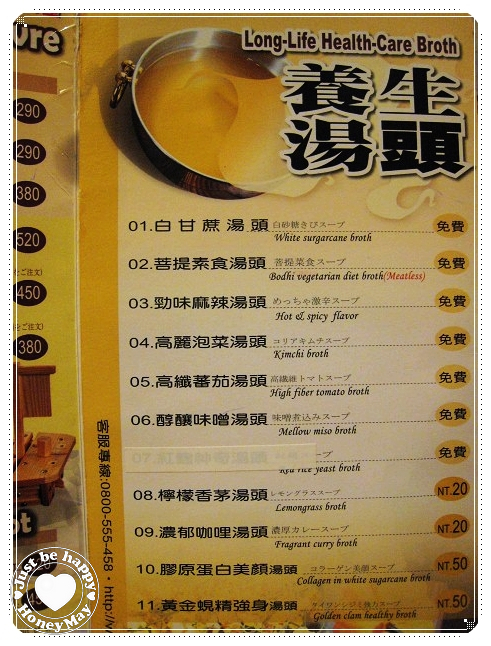 Long-Life Health-Care Broth
養生
湯頭
01.白甘蔗湯頭 白砂糖きびスープ 免費
White surgarcane broth
02.菩提素食湯頭 菩提菜食スープ 免費
Bodhi vegetarian diet broth(Meatless)
03.勁味麻辣湯頭 めっちゃ激辛スープ 免費
Hot & spicy flavor
04.高麗泡菜湯頭 コリアキムチスープ 免費
Kimchi broth
05.高纖蕃茄湯頭 高繊維トマトスープ 免費
High fiber tomato broth
06.醇釀味噌湯頭 味噌煮込みスープ 免費
Mellow miso broth
07.紅麴神奇湯頭 ープ 免費
Red rice yeast broth
08.檸檬香茅湯頭 レモングラススープ NT.20
Lemongrass broth
09.濃郁咖哩湯頭 濃厚カレースープ NT.20
Fragrant curry broth
10.膠原蛋白美顏湯頭 コラーゲン美顔スープ NT.50
Collagen in white sugarcane broth
11.黃金蜆精強身湯頭 NT.50
Golden clam healthy broth
客服專線:0800-555-458・http://w
ore
290
290
380
520
をご注文)
450
をご注文)
380
ot
Just be happy
HoneyMay